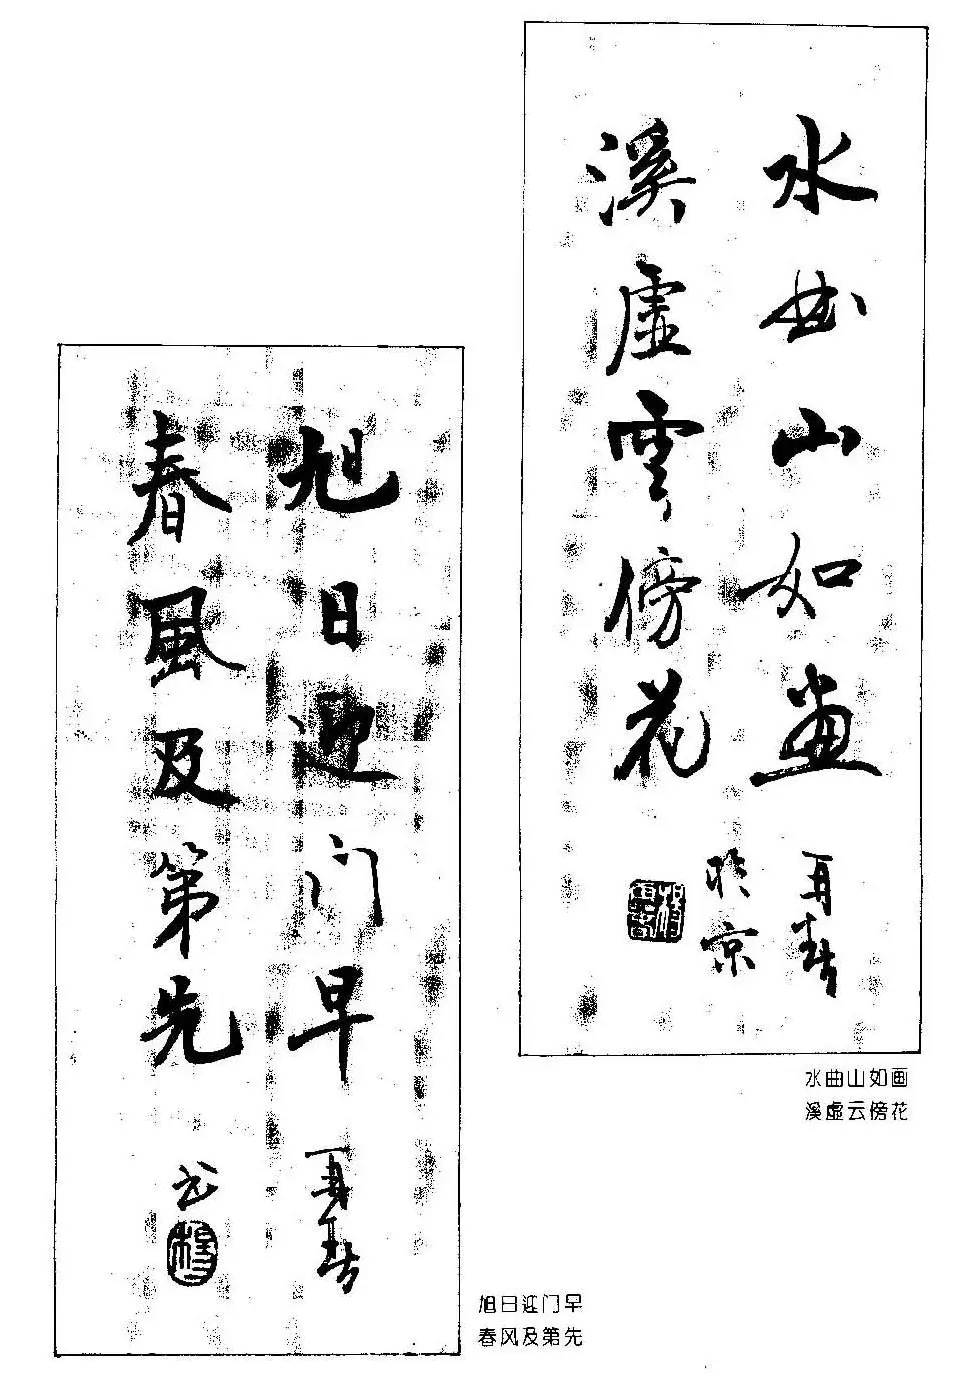 水曲山如畫
溪虛雲傍花
於京
水曲山如画
溪虚云傍花
旭日迎门早
春風及第先
书
旭日迎门早
春风及第先